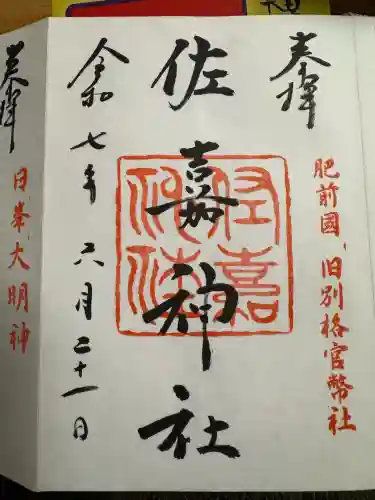 奉拝
肥前國、旧別格官幣社
佐嘉神社
佐嘉神社
令和七年六月二十一日
奉拝
日峯大明神